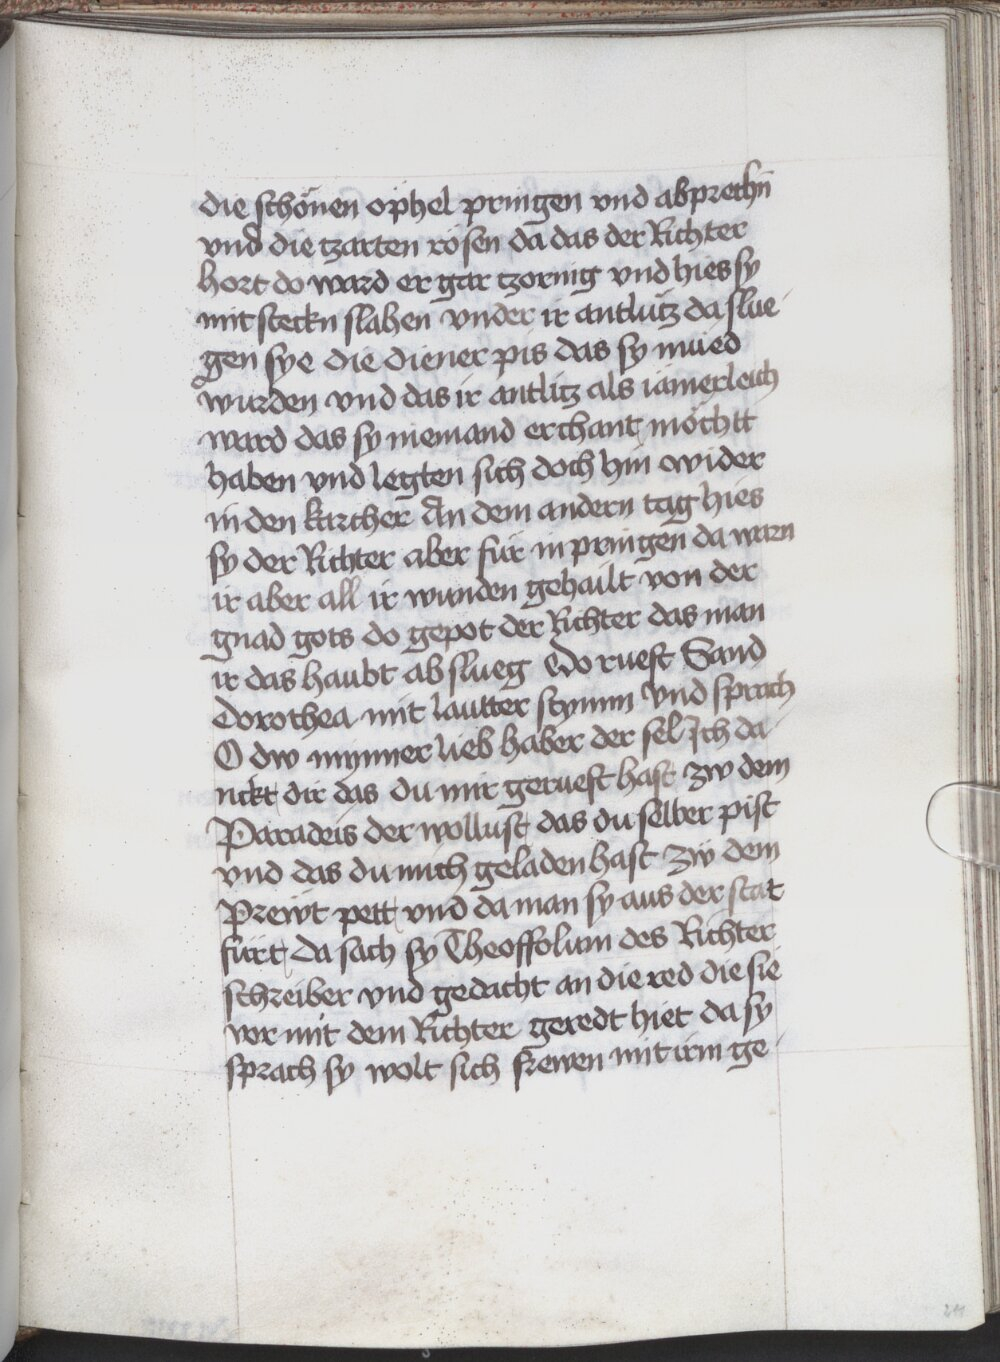 die schönen öphel pringen vnd abprechn̄
vnd die tzarten rosen da das der Richter
hort do ward er gar tzornig vnd hies sy
mit steckn slahen vnder ir antlütz da slue
gen sye die diener pis das sy mued
wurden vnd das ir antlitz als iamerleich
ward das sy niemand erchant möchtt
haben vnd legten sich doch hin wider
in den karcher An dem andern tag hies
sy der Richter aber für in pringen da warn
ir aber all ir wunden gehailt von der
gnad gots do gepot der Richter das man
ir das haubt ab slueg Do rueft Sand
Dorothea mit lautter stymm vnd sprach
O dw mynner lieb haber der sel Ich da
nckt dir das du mir gerueft hast zw dem
Paradeis der wollust das du selber pist
vnd das du mich geladen hast zw dem
Prewt pett vnd da man sy aus der stat
fürt da sach sy Theoffolum des Richter
schreiber vnd gedacht an die red die sie
vor mit dem Richter geredt hiet da sy
sprach sy wolt sich frewen mit irm ge
211